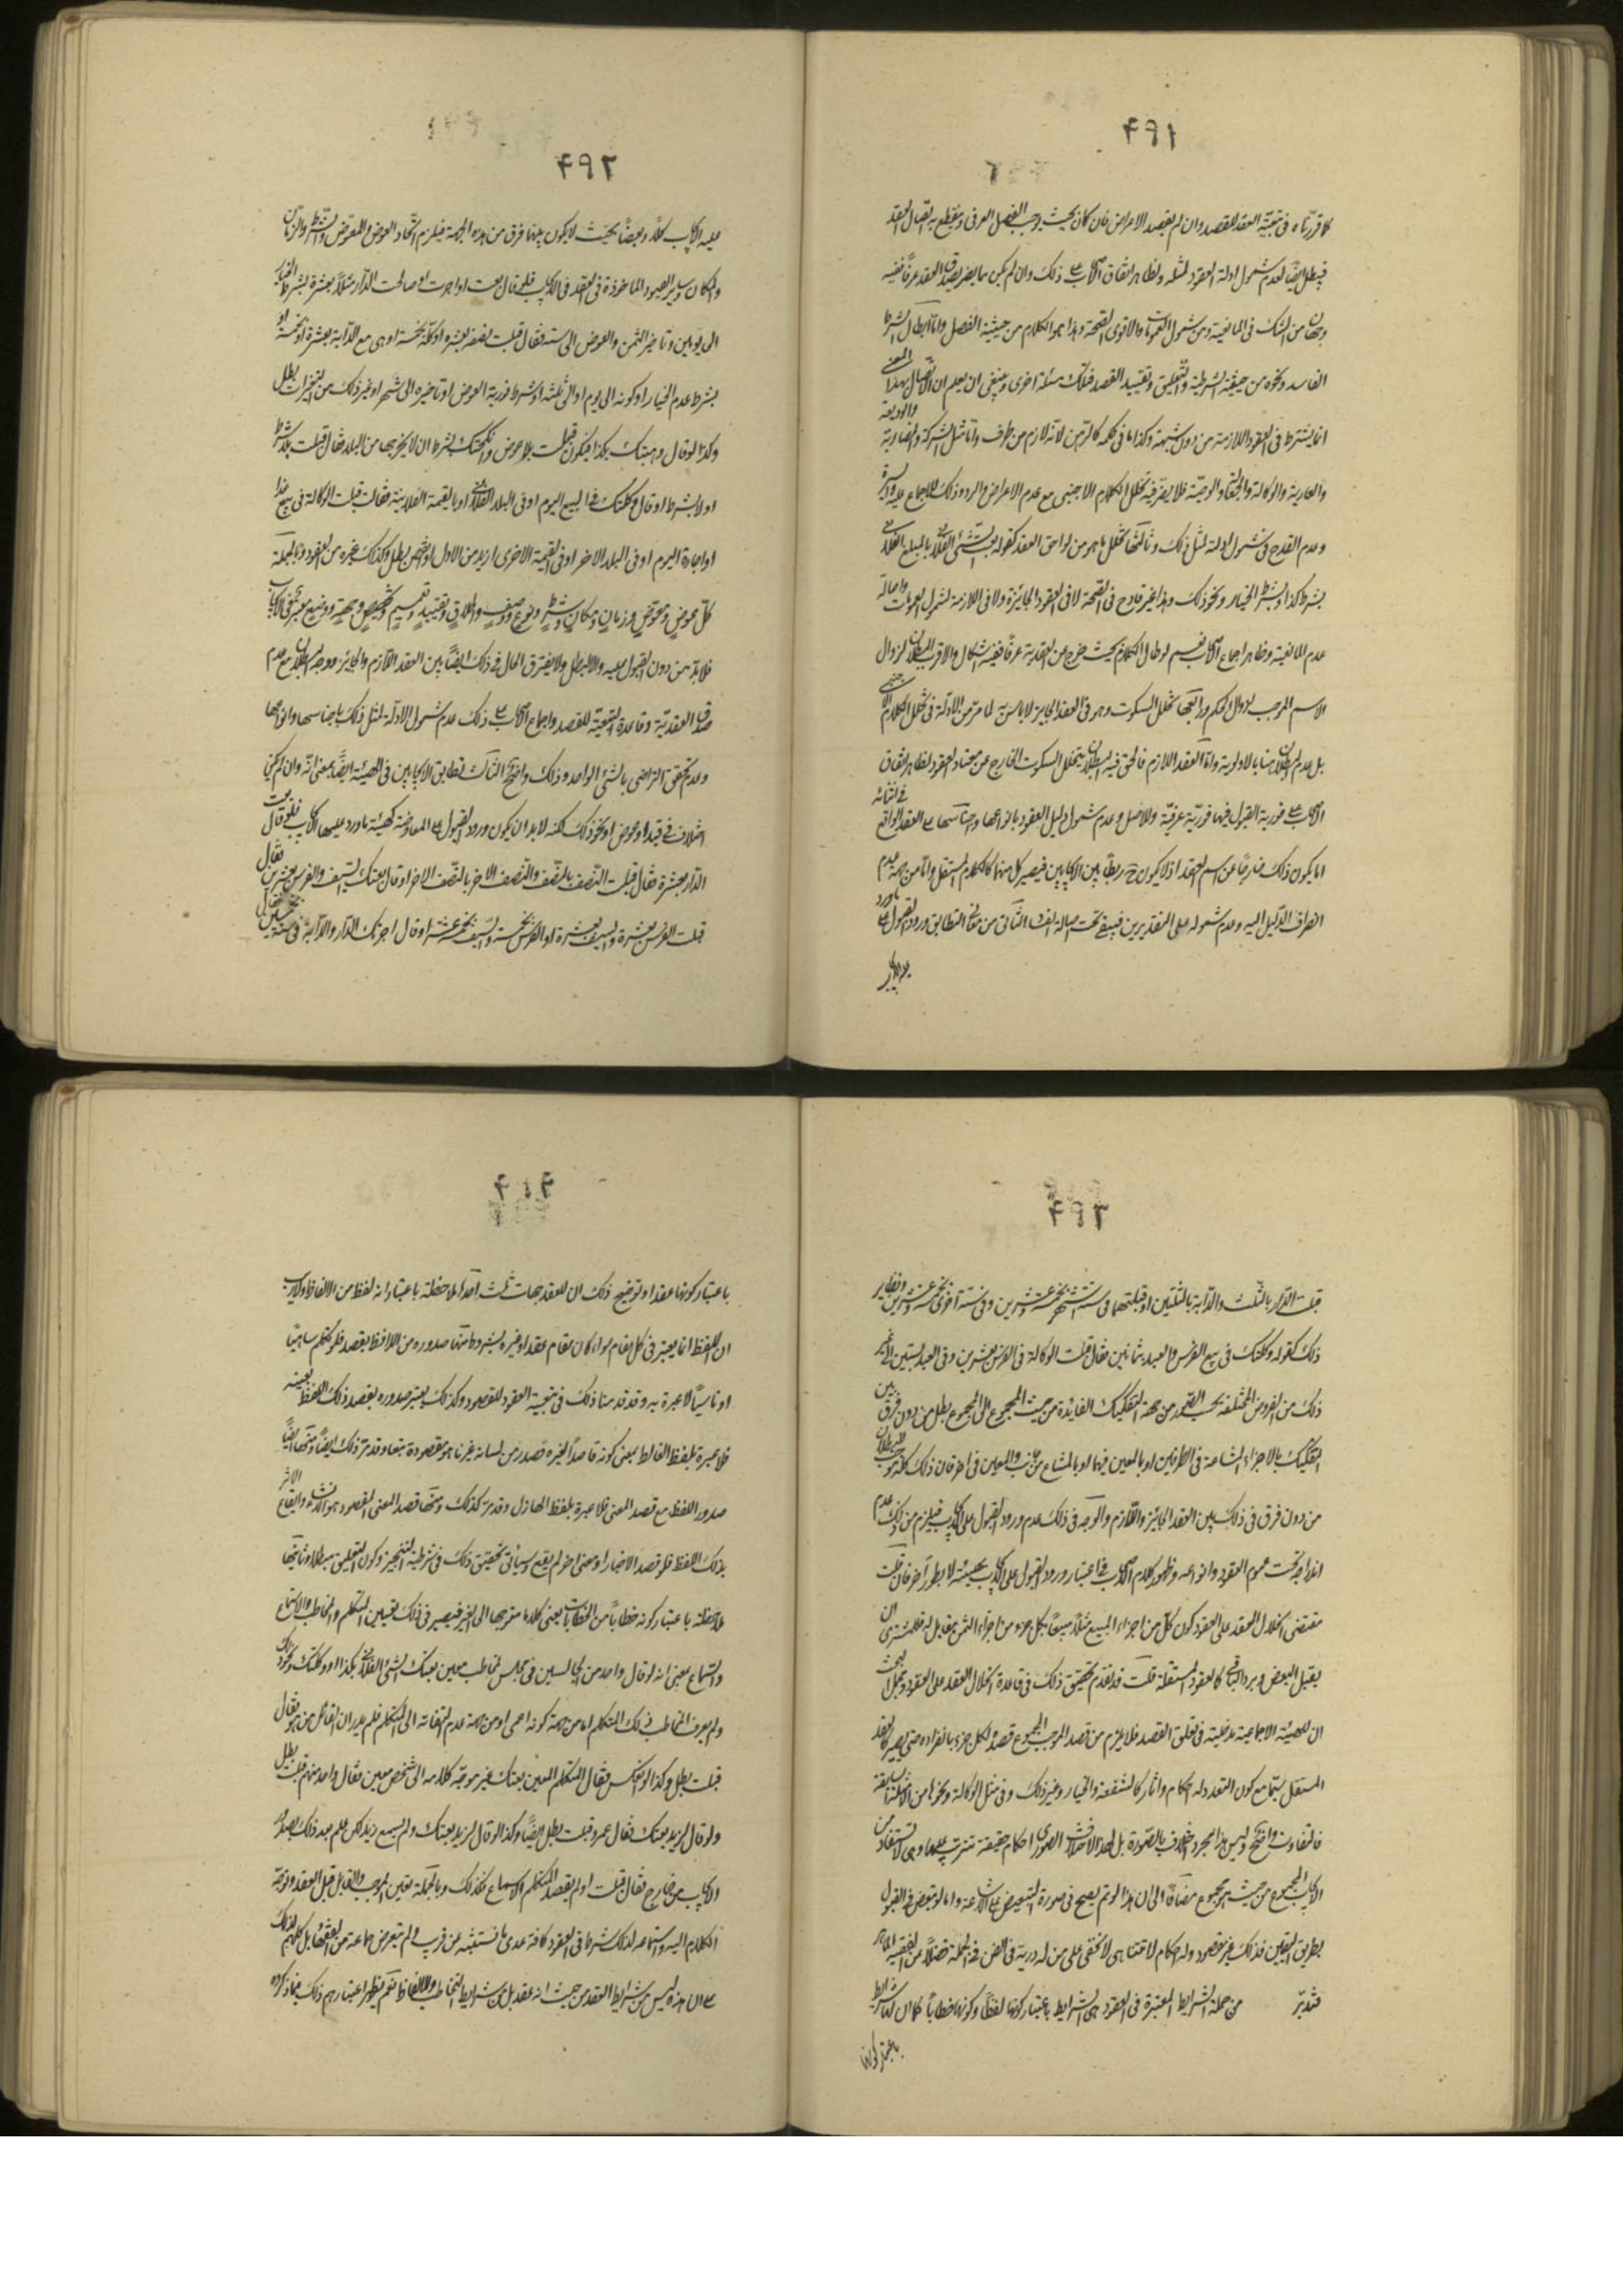 ۴۹۱
كما قررناه في تبعية العقد للقصد وان لم يقصد الاعراض فان كان بحيث يوجب الفصل العرفي وينقطع به اتصال العقد
فيبطل ايضا لعدم شمول ادلة العقود لمثله ولظاهر اتفاق الاصحاب على ذلك وان لم يكن مما يضر بصدق العقد عرفا ففيه
وجهان من الشك في المانعية ومن شمول العمومات والاقوى الصحة وهذا هو الكلام من حيثية الفصل واما ابطال الشرط
الفاسد ونحوه من حيثية الشرطية والتعليق وتقييد القصد فتلك مسئلة اخرى وينبغي ان يعلم ان الاتصال بهذا المعنى
انما يشترط في العقود اللازمة من دون شبهة وكذا ما في حكمه كالرهن لانه لازم من طرف واما مثل الشركة والمضاربة والوديعة
والعارية والوكالة والجعالة والوصية فلا يضر فيه تخلل الكلام الاجنبي مع عدم الاعراض والرد وذلك للاجماع عليه والسيرة
وعدم القدح في شمول الادلة لمثل ذلك وثالثها تخلل ما هو من لواحق العقد كقوله بعت الشيء الفلاني بالمبلغ الفلاني
بشرط كذا وبشرط الخيار ونحو ذلك وهذا غير قادح في الصحة لا في العقود الجائزة ولا في اللازمة لشمول العمومات واصالة
عدم المانعية وظاهر اجماع الاصحاب نعم لو طال الكلام بحيث خرج عن العقدية عرفا ففيه اشكال والاقرب البطلان لزوال
الاسم الموجب لزوال الحكم ورابعها تخلل السكوت وهو في العقد الجايز لا باس به لما مر من الادلة في تخلل الكلام الاجنبي
بل عدم البطلان هنا بالاولوية واما العقد اللازم فالحق فيه البطلان بتخلل السكوت الخارج عن معتاد العقود لظاهر اتفاق
الاصحاب على فورية القبول فيها فورية عرفية وللاصل وعدم شمول دليل العقود بانواعها واجناسها على العقد الواقع في اثنائه
اما بكون ذلك خارجا عن اسم العقد اذ لا يكون ح ربط بين الايجابين فيصير كل منهما كالكلام المستقل واما من جهة عدم
انصراف الدليل اليه وعدم شموله على التقديرين فيبقى تحت اصالة الفساد الثاني من معاني التطابق ورود القبول على ما ورد
عليه الايجاب
۴۹۲
عليه الايجاب كلا وبعضا بحيث لا يكون بينهما فرق من هذه الجهة فيلزم اتحاد العوض والمعوض والشرط والزمان
والمكان وساير القيود الماخوذة في العقد في الايجاب فلو قال بعت او اجرت او صالحت الدار مثلا بعشرة بشرط الخيار
الى يومين وتاخير الثمن والعوض الى سنة فقال قبلت نصفه بعشرة او كله بخمسة او هي مع الدابة بعشرة او بخمسة او
بشرط عدم الخيار او كونه الى يوم او الى ثلثة او شرط فورية العوض او تاخيره الى شهر او غير ذلك من التغيرات بطل
وكذا لو قال وهبتك بكذا فيكون قبلت بلا عوض وانكحتك بشرط ان لا يخرجها من البلد فقال قبلت بلا شرط
او لا بشرط او قال وكلتك في البيع اليوم او في البلد الفلاني او بالقيمة الفلانية فقال قبلت الوكالة في بيع غدا
او اجارة اليوم او في البلد الاخر او في القيمة الاخرى ازيد من الاول او انقص بطل وكذلك غيره من العقود وبالجملة
كل عوض ومعوض وزمان ومكان وشرط ونوع ووصف واطلاق وتقييد وتعميم وتخصيص وجهة ووضع معتبر في الايجاب
فلا بد من دون القبول عليه والا لبطل ولا يفترق الحال في ذلك ايضا بين العقد اللازم والجائز ووجه البطلان مع عدم
صدق العقدية وقاعدة التبعية للقصد واجماع الاصحاب على ذلك عدم شمول الادلة لمثل ذلك باجناسها وانواعها
وعدم تحقق التراضي بالشيء الواحد وذلك واضح الثالث تطابق الايجابين في الهيئة ايضا بمعنى انه وان لم يكن
اختلاف في قيد او عوض او نحو ذلك لكنه لا بد ان يكون ورود القبول على المعاوضة كهيئة ما ورد عليها الايجاب فلو قال بعت
الدار بعشرة فقال قبلت النصف بالنصف والنصف الاخر بالنصف الاخر او قال بعتك السيف والفرس بعشرين فقال
قبلت الفرس بعشرة والسيف بعشرة او الفرس بخمسة والسيف بخمسة عشر او قال اجرتك الدار والدابة في سنة بخمسين فقال
۴۹۳
قبلت الدار بالثلث والدابة بالثلثين او قبلتهما في ستة اشهر بخمسة وعشرين وفي ستة اخرى بخمسة وعشرين ونظاير
ذلك كقوله وكلتك في بيع الفرس والعبد بثمانين فقال قبلت الوكالة في الفرس بعشرين وفي العبد بستين الى غير
ذلك من الفروض المختلفة بحسب القصد من جهة التفكيك الفائدة من حيث المجموع الى المجموع بطل من دون فرق بين
التفكيك بالاجزاء المشاعة في الطرفين او بالمعين فيهما او بالمشاع من جانب والمعين في اخر فان ذلك كله موجب للبطلان
من دون فرق في ذلك بين العقد الجائز واللازم والوجه في ذلك عدم ورود القبول على الايجاب فيلزم من ذلك عدم
اندراجه تحت عموم العقود وانواعه وظهور كلام الاصحاب في اعتبار ورود القبول على الايجاب بهيئته لا بطور آخر فان قلت
مقتضى انحلال العقد على العقود كون كل من اجزاء المبيع مثلا مبيعا بكل جزء من اجزاء الثمن يقابل له فللمشتري ان
يقبل البعض ويرد الباقي كالعقود المستقلة قلت قد تقدم تحقيق ذلك في قاعدة انحلال العقد على العقود ومجمل البحث
ان للهيئة الاجتماعية مدخلية في تعلق القصد فلا يلزم من قصد الموجب المجموع قصد لكل جزء بانفراده حتى يصير كالعقد
المستقل سيما مع كون التعدد له احكام واثار كالشفعة والخيار وغير ذلك وفي مثل الوكالة ونحوها من الامثلة السابقة
فالتفاوت واضح وليس هذا مجرد اختلاف بالصورة بل لهذا الاختلاف الصوري احكام حقيقة تترتب عليها وهي لا تستفاد من
الايجاب المجموع من حيث هو مجموع مضافا الى ان هذا لو تم يصح في صورة التبعيض على الاشاعة واما لو تبعض في القبول
بطريق التعيين فذلك غير مقصود وله احكام لا تتناهى لا تخفى على من له دربة في الفن في الجملة فضلا عن الفقيه الماهر
فتدبر من جملة الشرايط المعتبرة في العقود هي الشرايط باعتبار كونها لفظا وكونها خطابا كما ان لها شرايط
باعتبار كونها
۴۹۴
باعتبار كونها عقدا وتوضيح ذلك ان للعقد جهات ثلث احدها ملاحظته باعتبار انه لفظ من الالفاظ ولا ريب
ان اللفظ انما يعتبر في كل مقام سواء كان مقام عقد او غيره بشروط منها صدوره من اللافظ بقصد فلو تكلم ساهيا
او ناسيا لا عبرة به وقد قدمنا ذلك في تبعية العقود للقصود وكذلك يعتبر صدوره بقصد ذلك اللفظ بعينه
فلا عبرة بلفظ الغالط بمعنى كونه قاصدا لغيره فصدر من لسانه غير ما هو مقصوده تبعا وقد مر ذلك ايضا ومنها ايضا
صدور اللفظ مع قصد المعنى فلا عبرة بلفظ الهازل وقد مر كذلك ومنها قصد المعنى المقصود هو الانشاء وايقاع الاثر
بذلك اللفظ فلو قصد الاخبار او معنى اخر لم يقع وسياتي تحقيق ذلك في شرطية التنجيز وكون التعليق مبطلا وثانيها
ملاحظته باعتبار كونه خطابا من الخطابات يعني كلاما متوجها الى الغير فيعتبر في ذلك تعيين المتكلم والمخاطب والاستماع
والسماع بمعنى انه لو قال واحد من الجالسين في مجلس لمخاطب معين بعتك الشيء الفلاني بكذا او وكلتك ونحو ذلك
ولم يعرف المخاطب ذلك المتكلم اما من جهة كونه اعمى او من جهة عدم التفاته الى المتكلم فلم يدر ان القائل من هو فقال
قبلت بطل وكذا لو انعكس فقال المتكلم المعين بعتك غير موجه كلامه الى شخص معين فقال واحد منهم قبلت بطل
ولو قال لزيد بعتك فقال عمرو قبلت بطل ايضا وكذا لو قال لزيد بعتك ولم يسمع زيد لكن علم بعد ذلك بصدور
الايجاب من خارج فقال قبلت او لم يقصد المتكلم الاسماع فكذلك وبالجملة تعيين الموجب والقابل قبل العقد وتوجه
الكلام اليه واستماعه لذلك شرط في العقود كافة عدى ما نستثنيه عن قريب ولم يتعرض جماعة من الفقهاء بل كلهم لذلك
على ان هذه ليس من شرايط العقد من حيث انه عقد بل من شرايط التخاطب والالفاظ نعم يظهر اعتبارهم ذلك مما ذكروه